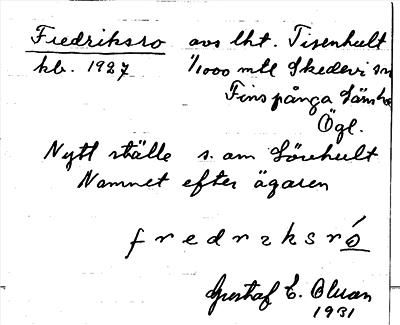 Fredriksro avs lht. Tisenhult
kb. 1927 1/1000 mtl Skedevi sn
Finspånga läns
Ögl.
Nytt ställe s. om Lövhult
Namnet efter ägaren
fredrɩksró
Gustaf E.
1931